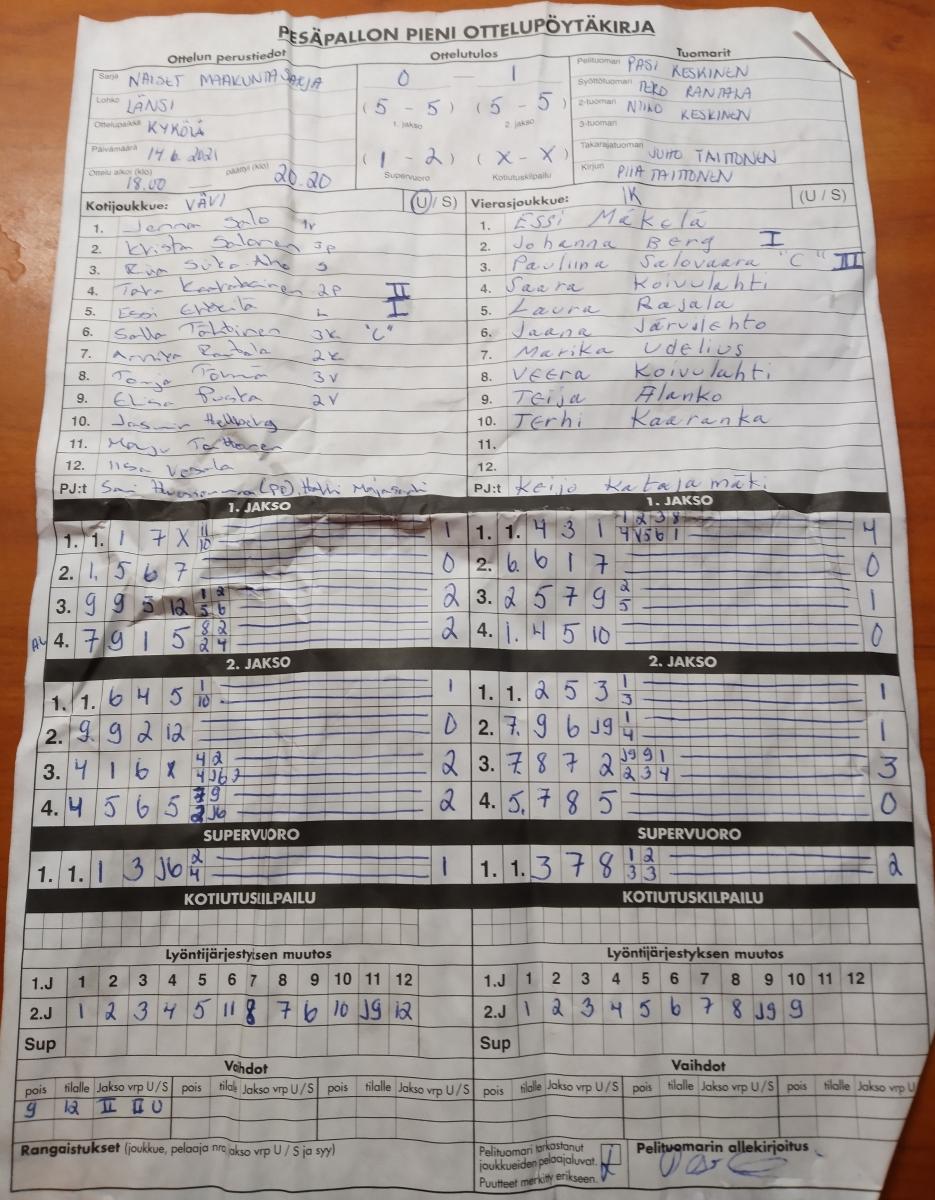 PESÄPALLON PIENI OTTELUPÖYTÄKIRJA
Ottelun perustiedot Ottelutulos Tuomarit
Sarja NAISET MAAKUNTASARJA
Lohko LÄNSI
Ottelupaikka KYKÖLÄ
Päivämäärä 14.6.2021
Ottelu alkoi (klo) 18.00 päättyi (klo) 20.20
0 — 1
( 5 - 5 ) ( 5 - 5 )
1. jakso 2. jakso
( 1 - 2 ) ( X - X )
Supervuoro Kotiutuskilpailu
Pelituomari PASI KESKINEN
Syöttötuomari TERO RANTALA
2-tuomari NIILO KESKINEN
3-tuomari
Takarajatuomari JUHO TAITTONEN
Kirjuri PIIA TAITTONEN
Kotijoukkue: VÄVI (U / S)
1. Jenna Salo 1v
2. Krista Salonen 3p
3. S
4. 2p II
5. Essi L I
6. Salla 3k "C"
7. Rantala 2k
8. Tonja 3v
9. Elisa 2v
10. Jasmin Hellberg
11. Taittonen
12. Iisa Vesala
PJ:t
Vierasjoukkue: IK (U / S)
1. Essi Mäkelä
2. Johanna Berg I
3. Pauliina Salovaara "C" III
4. Saara Koivulahti
5. Laura Rajala
6. Jaana Järvilehto
7. Marika Udelius
8. Veera Koivulahti
9. Teija Alanko
10. Terhi Kaaranka
11.
12.
PJ:t Keijo Katajamäki
1. JAKSO 1. JAKSO
1. 1. 1 7 X 11 10 1
2. 1. 5 6 7 0
3. 9 9 5 12 1 2 5 6 2
4. 7 9 1 5 8 2 2 4 2
1. 1. 4 3 1 1 2 3 8 4
2. 6. 6 1 7 0
3. 2 5 7 9 2 5 1
4. 1. 4 5 10 0
2. JAKSO 2. JAKSO
1. 1. 6 4 5 1 10 1
2. 9. 9 2 12 0
3. 4 1 6 4 2 2
4. 4 5 6 5 2
1. 1. 2 5 3 1 3 1
2. 7. 9 6 J9 1 4 1
3. 7. 8 7 2 J9 9 1 2 3 4 3
4. 5. 7 8 5 0
SUPERVUORO SUPERVUORO
1. 1. 1 3 J6 2 4 1
1. 1. 3 7 8 1 2 3 3 2
KOTIUTUSKILPAILU KOTIUTUSKILPAILU
Lyöntijärjestyksen muutos Lyöntijärjestyksen muutos
1.J 1 2 3 4 5 6 7 8 9 10 11 12
2.J 1 2 3 4 5 11 8 7 6 10 J9 12
Sup
1.J 1 2 3 4 5 6 7 8 9 10 11 12
2.J 1 2 3 4 5 6 7 8 J9 9
Sup
Vaihdot Vaihdot
pois tilalle Jakso vrp U / S pois tilalle Jakso vrp U / S pois tilalle Jakso vrp U / S
9 12 II II U
pois tilalle Jakso vrp U / S pois tilalle Jakso vrp U / S pois tilalle Jakso vrp U
Rangaistukset (joukkue, pelaaja nro, jakso vrp U / S ja syy)
Pelituomari tarkastanut
joukkueiden pelaajaluvat.
Puutteet merkitty erikseen.
Pelituomarin allekirjoitus